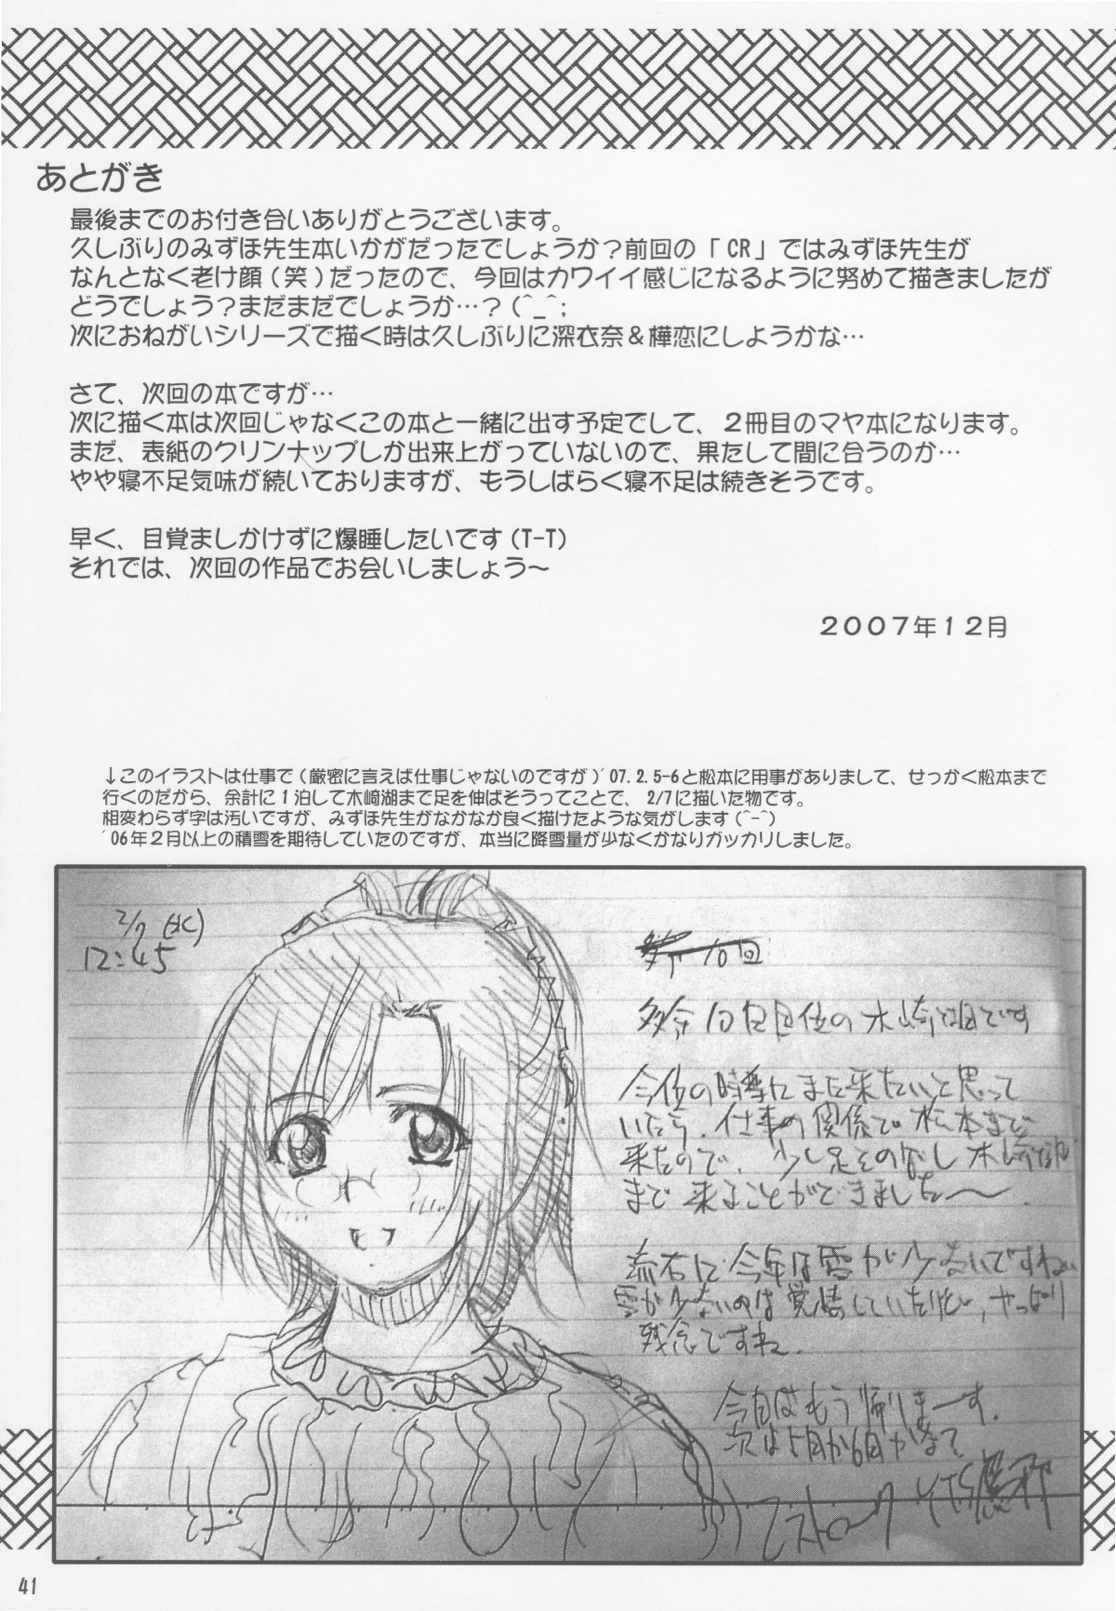 あとがき
最後までのお付き合いありがとうございます。
久しぶりのみずほ先生本いかがだったでしょうか？前回の「CR」ではみずほ先生が
なんとなく老け顔(笑)だったので、今回はカワイイ感じになるように努めて描きましたが
どうでしょう？まだまだでしょうか…？(^_^;
次におねがいシリーズで描く時は久しぶりに深衣奈＆樺恋にしようかな…
さて、次回の本ですが…
次に描く本は次回じゃなくこの本と一緒に出す予定でして、２冊目のマヤ本になります。
まだ、表紙のクリンナップしか出来上がっていないので、果たして間に合うのか…
やや寝不足気味が続いておりますが、もうしばらく寝不足は続きそうです。
早く、目覚ましかけずに爆睡したいです(T-T)
それでは、次回の作品でお会いしましょう～
２００７年１２月
↓このイラストは仕事で(厳密に言えば仕事じゃないのですが)'07.2.5-6と松本に用事がありまして、せっかく松本まで
行くのだから、余計に１泊して木崎湖まで足を伸ばそうってことで、2/7に描いた物です。
相変わらず字は汚いですが、みずほ先生がなかなか良く描けたような気がします(^-^)
'06年２月以上の積雪を期待していたのですが、本当に降雪量が少なくかなりガッカリしました。
2/7 (水)
12:45
多分10回目位の木崎湖です
今位の時季にまた来たいと思って
いたら、仕事の関係で松本まで
来たので、少し足をのばし木崎湖
まで来ることができました～。
流石に今年は雪が少ないですね
雪が少ないのは覚悟していたけど、やっぱり
残念ですね。
今日はもう帰りまーす。
次は5月か6月かなぁ？
41